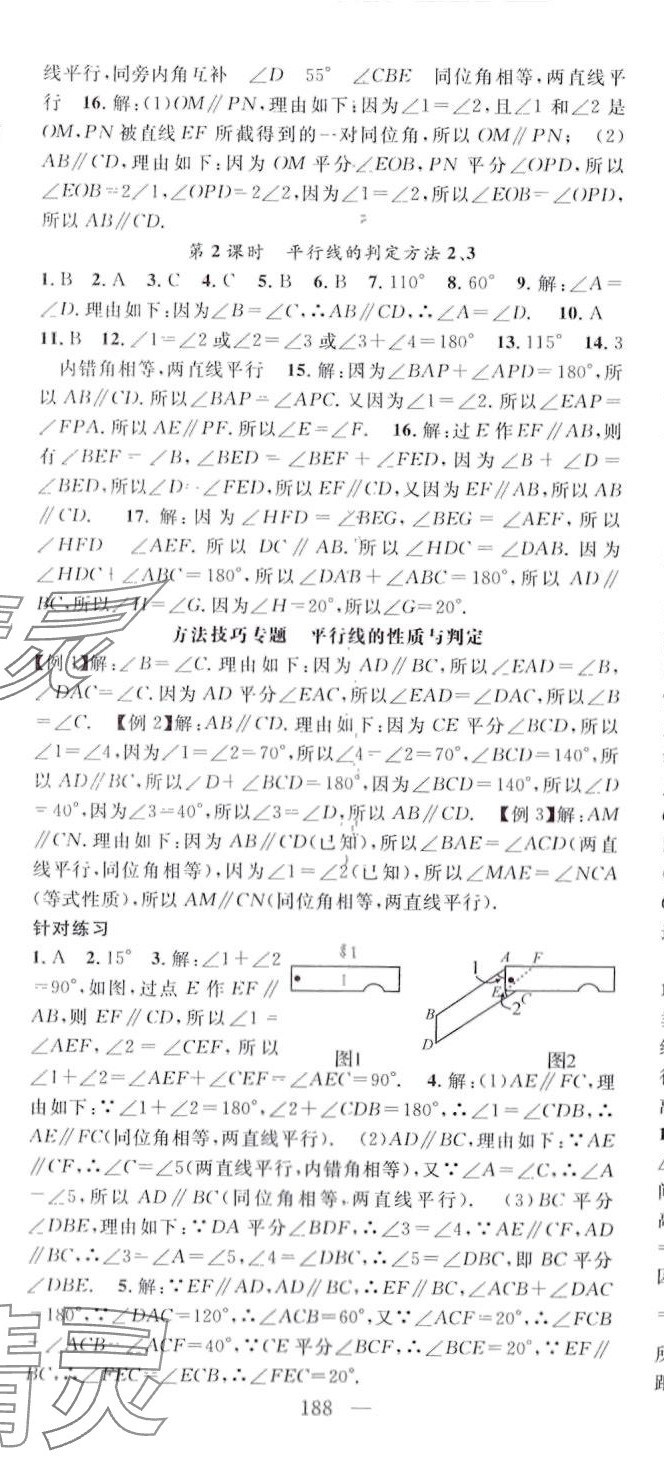 线平行,同旁内角互补 ∠D 55° ∠CBE 同位角相等,两直线平
行 16.解:(1)OM∥PN,理由如下:因为∠1=∠2,且∠1和∠2是
OM,PN被直线EF所截得到的一对同位角,所以OM∥PN; (2)
AB∥CD,理由如下:因为OM平分∠EOB,PN平分∠OPD,所以
∠EOB=2∠1,∠OPD=2∠2,因为∠1=∠2,所以∠EOB=∠OPD,
所以AB∥CD.
第2课时 平行线的判定方法2、3
1.B 2.A 3.C 4.C 5.B 6.B 7.110° 8.60° 9.解:∠A=
∠D.理由如下:因为∠B=∠C,∴AB∥CD,∴∠A=∠D. 10.A
11.B 12.∠1=∠2或∠2=∠3或∠3+∠4=180° 13.115° 14.3
内错角相等,两直线平行 15.解:因为∠BAP+∠APD=180°,所
以AB∥CD.所以∠BAP=∠APC.又因为∠1=∠2.所以∠EAP=
∠FPA.所以AE∥PF.所以∠E=∠F. 16.解:过E作EF∥AB,则
有∠BEF=∠B,∠BED=∠BEF+∠FED,因为∠B+∠D=
∠BED,所以∠D=∠FED,所以EF∥CD,又因为EF∥AB,所以AB
∥CD. 17.解:因为∠HFD=∠BEG,∠BEG=∠AEF,所以
∠HFD=∠AEF.所以DC∥AB.所以∠HDC=∠DAB.因为
∠HDC+∠ABC=180°,所以∠DAB+∠ABC=180°,所以AD∥
BC,所以∠H=∠G.因为∠H=20°,所以∠G=20°.
方法技巧专题 平行线的性质与判定
【例1】解:∠B=∠C.理由如下:因为AD∥BC,所以∠EAD=∠B,
∠DAC=∠C.因为AD平分∠EAC,所以∠EAD=∠DAC,所以∠B
=∠C. 【例2】解:AB∥CD.理由如下:因为CE平分∠BCD,所以
∠1=∠4,因为∠1=∠2=70°,所以∠4=∠2=70°,∠BCD=140°,所
以AD∥BC,所以∠D+∠BCD=180°,因为∠BCD=140°,所以∠D
=40°,因为∠3=40°,所以∠3=∠D,所以AB∥CD. 【例3】解:AM
∥CN.理由如下:因为AB∥CD(已知),所以∠BAE=∠ACD(两直
线平行,同位角相等),因为∠1=∠2(已知),所以∠MAE=∠NCA
(等式性质),所以AM∥CN(同位角相等,两直线平行).
针对练习
1.A 2.15° 3.解:∠1+∠2
=90°,如图,过点E作EF∥
AB,则EF∥CD,所以∠1=
∠AEF,∠2=∠CEF,所以
1
A F
1
E C
2
B
D
图1
图2
∠1+∠2=∠AEF+∠CEF=∠AEC=90°. 4.解:(1)AE∥FC,理
由如下:∵∠1+∠2=180°,∠2+∠CDB=180°,∴∠1=∠CDB,∴
AE∥FC(同位角相等,两直线平行). (2)AD∥BC,理由如下:∵AE
∥CF,∴∠C=∠5(两直线平行,内错角相等),又∵∠A=∠C,∴∠A
=∠5,所以AD∥BC(同位角相等,两直线平行). (3)BC平分
∠DBE,理由如下:∵DA平分∠BDF,∴∠3=∠4,∵AE∥CF,AD
∥BC,∴∠3=∠A=∠5,∠4=∠DBC,∴∠5=∠DBC,即BC平分
∠DBE. 5.解:∵EF∥AD,AD∥BC,∴EF∥BC,∠ACB+∠DAC
=180°,∵∠DAC=120°,∴∠ACB=60°,又∵∠ACF=20°,∴∠FCB
=∠ACB-∠ACF=40°,∵CE平分∠BCF,∴∠BCE=20°,∵EF∥
BC,∴∠FEC=∠ECB,∴∠FEC=20°.
188